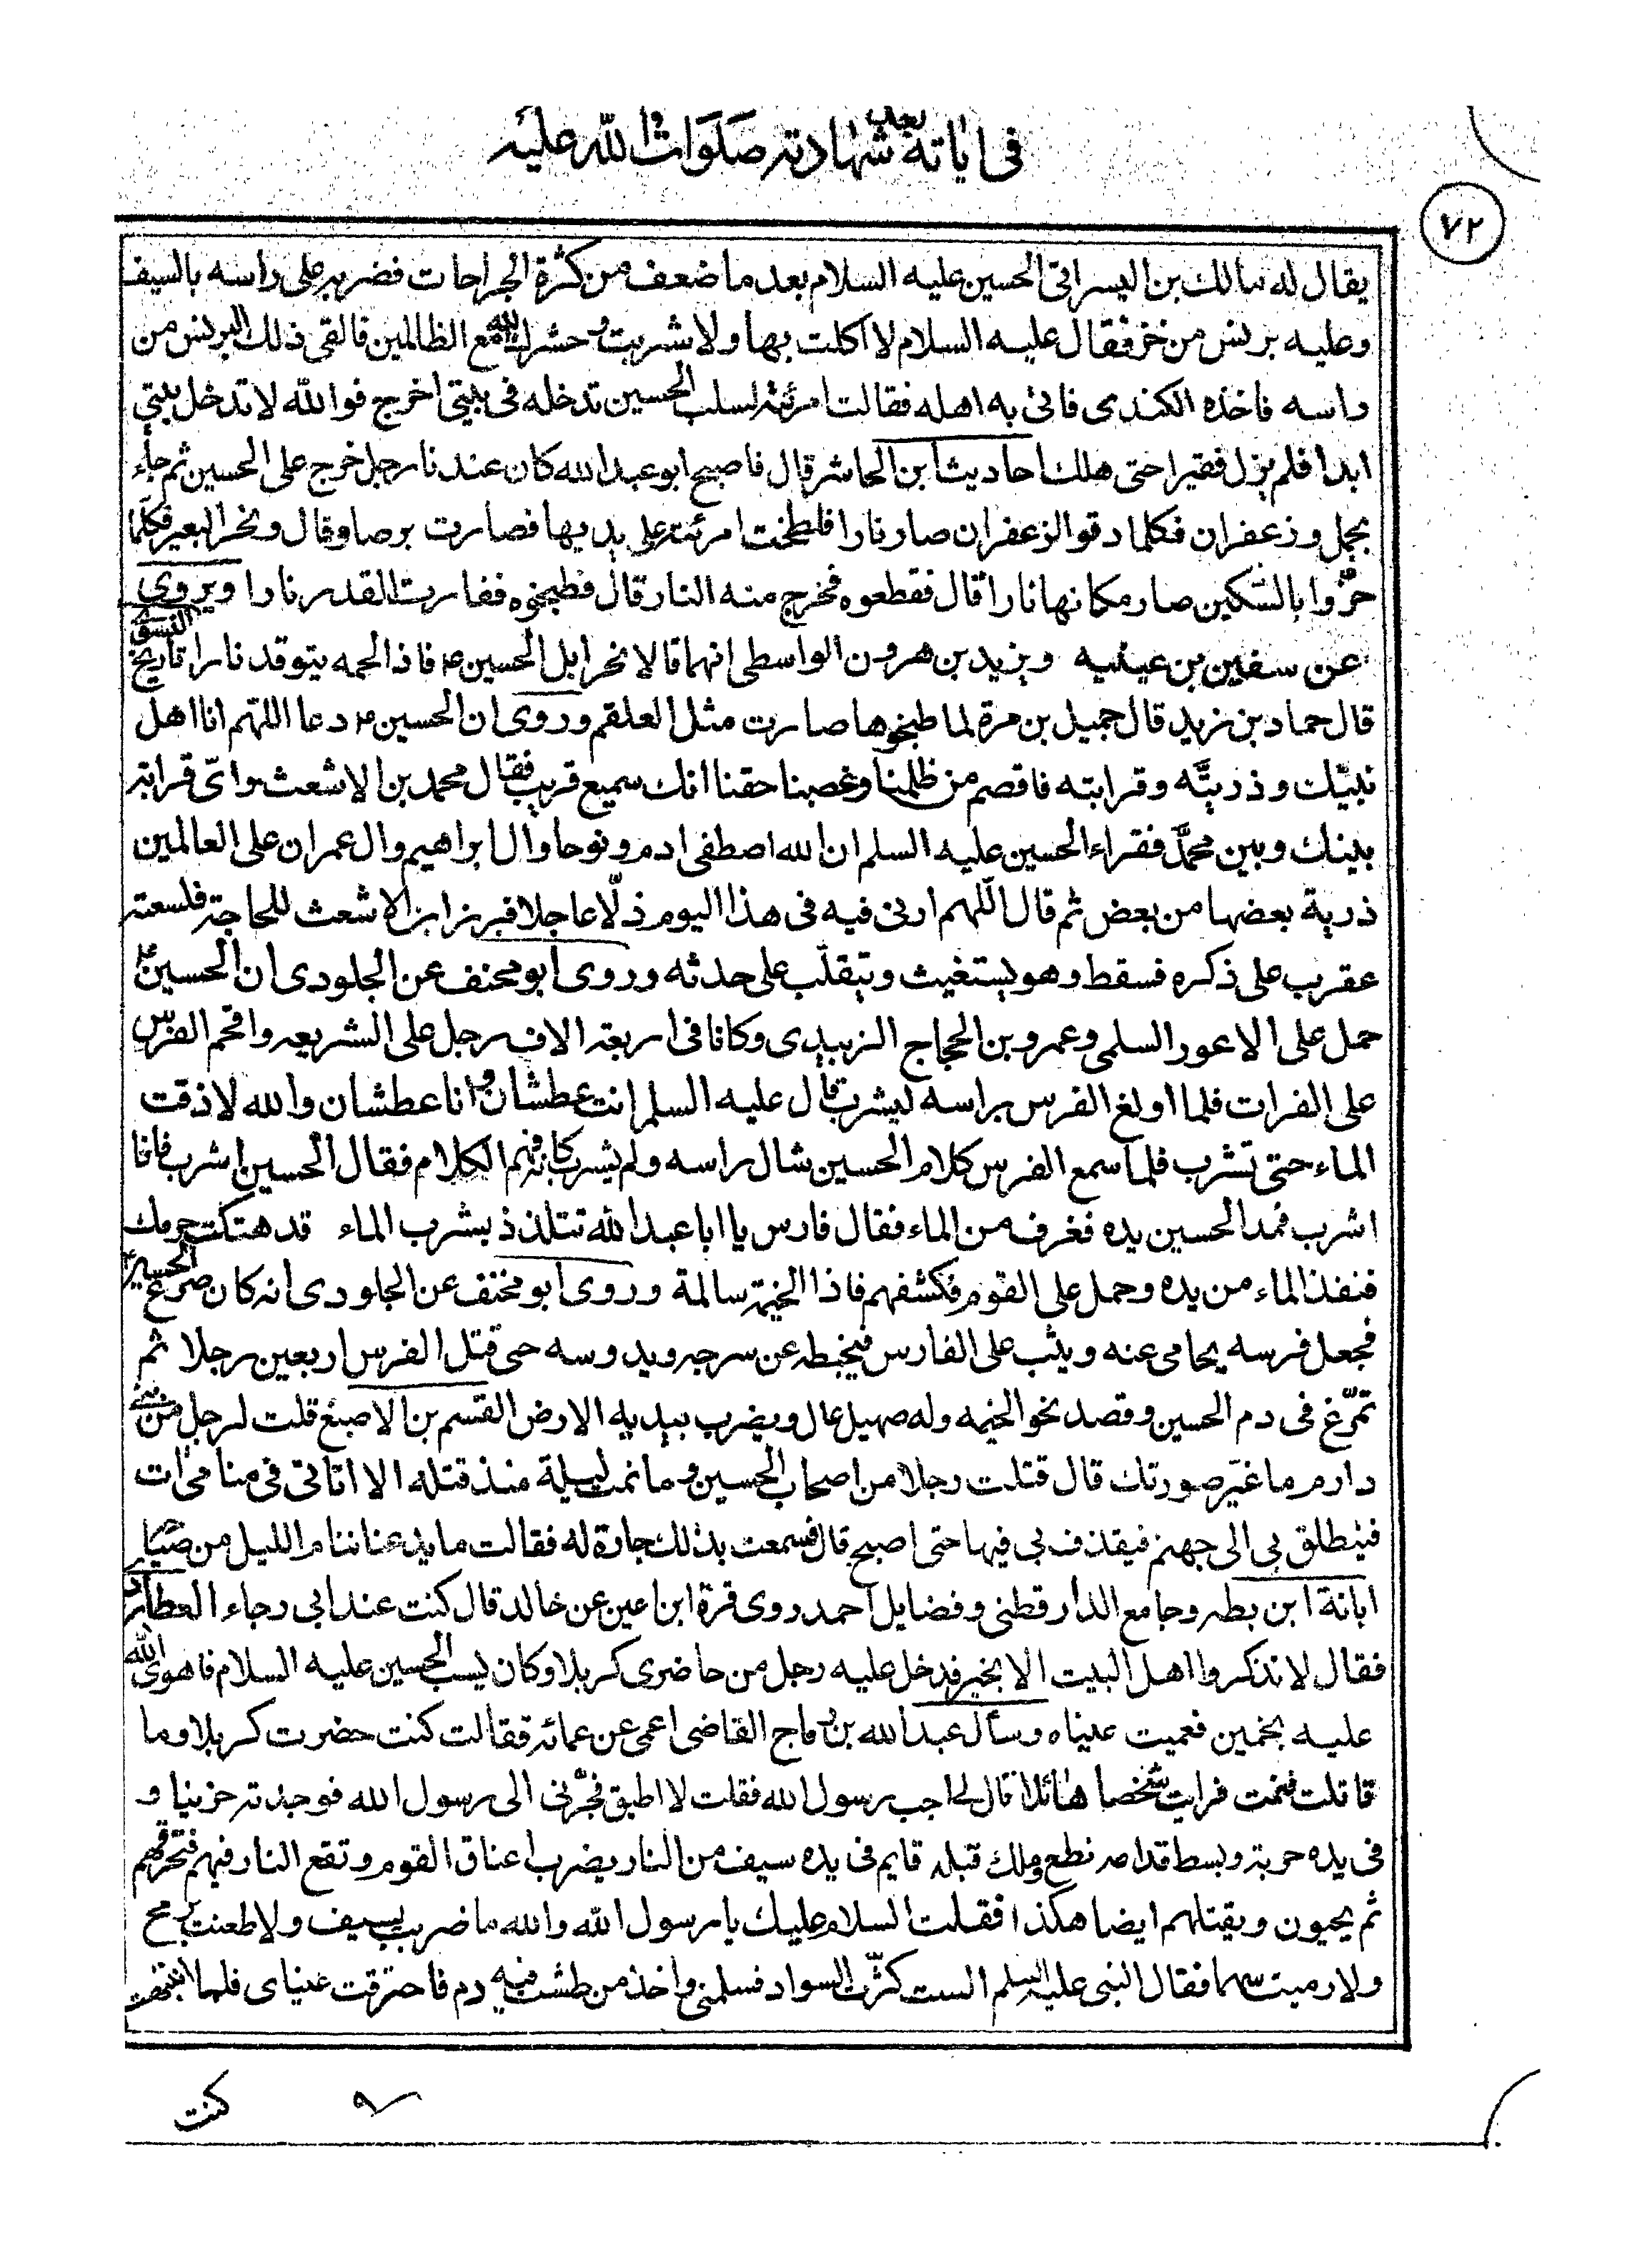 فى اياته بعد شهادته صلوات الله عليه
٧٢
يقال له مالك بن اليسر اتى الحسين عليه السلام بعد ما ضعف من كثرة الجراحات فضربه على راسه بالسيف
وعليه برنس من خز فقال عليه السلام لا اكلت بها ولا شربت وحشرك الله مع الظالمين فالقى ذلك البرنس من
راسه فاخذه الكندى فاتى به اهله فقالت امرئته لسلب الحسين تدخله فى بيتى اخرج فوالله لا تدخل بيتى
ابدا فلم يزل فقيرا حتى هلك احاديث ابن الحاشر قال فاصبح ابو عبد الله كان عندنا رجل خرج على الحسين ثم جاء
بجمل وزعفران فكلما دقوا الزعفران صار نارا فلطخت امرئته على يديها فصارت برصا وقال ونحر البعير فكلما
حزوا بالسكين صار مكانها نارا قال فقطعوه فخرج منه النار قال فطبخوه ففارت القدر نارا ويروى
عن سفين بن عيينه ويزيد بن هرون الواسطى انهما قالا نحر ابل الحسين ع فاذا لحمه يتوقد نارا تاريخ النسوى
قال حماد بن زيد قال جميل بن مرة لما طبخوها صارت مثل العلقم وروى ان الحسين ع دعا اللهم انا اهل
نبيك وذريته وقرابته فاقصم من ظلمنا وغصبنا حقنا انك سميع قريب فقال محمد بن الاشعث واى قرابة
بينك وبين محمد فقراء الحسين عليه السلم ان الله اصطفى ادم ونوحا وال ابراهيم وال عمران على العالمين
ذرية بعضها من بعض ثم قال اللهم ارنى فيه فى هذا اليوم ذلا عاجلا فبرز ابن الاشعث للحاجة فلسعته
عقرب على ذكره فسقط وهو يستغيث ويتقلب على حدثه وروى ابو مخنف عن الجلودى ان الحسين ع
حمل على الاعور السلمى وعمرو بن الحجاج الزبيدى وكانا فى اربعة الاف رجل على الشريعه واقحم الفرس
على الفرات فلما اولغ الفرس براسه ليشرب قال عليه السلم انت عطشان وانا عطشان والله لا ذقت
الماء حتى تشرب فلما سمع الفرس كلام الحسين شال راسه ولم يشرب كانه فهم الكلام فقال الحسين اشرب فانا
اشرب فمد الحسين يده فغرف من الماء فقال فارس يا ابا عبد الله تتلذذ بشرب الماء قد هتكت حرمك
فنفذ الماء من يده وحمل على القوم فكشفهم فاذا الخيمة سالمة وروى ابو مخنف عن الجلودى انه كان صرع الحسين ع
فجعل فرسه يحامى عنه ويثب على الفارس فيخبطه عن سرجه ويدوسه حتى قتل الفرس اربعين رجلا ثم
تمرغ فى دم الحسين وقصد نحو الخيمه وله صهيل عال ويضرب بيديه الارض القسم بن الاصبغ قلت لرجل من بنى
دارم ما غير صورتك قال قتلت رجلا من اصحاب الحسين وما نمت ليلة منذ قتله الا اتانى فى منامى ات
فينطلق بى الى جهنم فيقذف بى فيها حتى اصبح قال فسمعت بذلك جارة له فقالت ما يدعنا ننام الليل من صياحه
ابانة ابن بطه وجامع الدارقطنى وفضايل احمد روى قرة ابن اعين عن خالد قال كنت عند ابى رجاء العطاردى
فقال لا تذكروا اهل البيت الا بخير فدخل عليه رجل من حاضرى كربلا وكان يسب الحسين عليه السلام فاهوى الله
عليه بخمين فعميت عيناه وسأل عبد الله بن رماح القاضى اعمى عن عمائه فقالت كنت حضرت كربلا وما
قاتلت فنمت فرايت شخصا هائلا قال لى اجب رسول الله فقلت لا اطيق فجرنى الى رسول الله فوجدته حزينا و
فى يده حربة وبسط قدامه نطع وملك قبله قايم فى يده سيف من النار يضرب اعناق القوم وتقع النار فيهم فتحرقهم
ثم يحيون ويقتلهم ايضا هكذا فقلت السلام عليك يا رسول الله والله ما ضربت بسيف ولا طعنت برمح
ولا رميت سهما فقال النبى عليه السلم الست كثرت السواد فسلمنى واخذ من طشت فيه دم فاحترقت عيناى فلما انتبهت
كنت